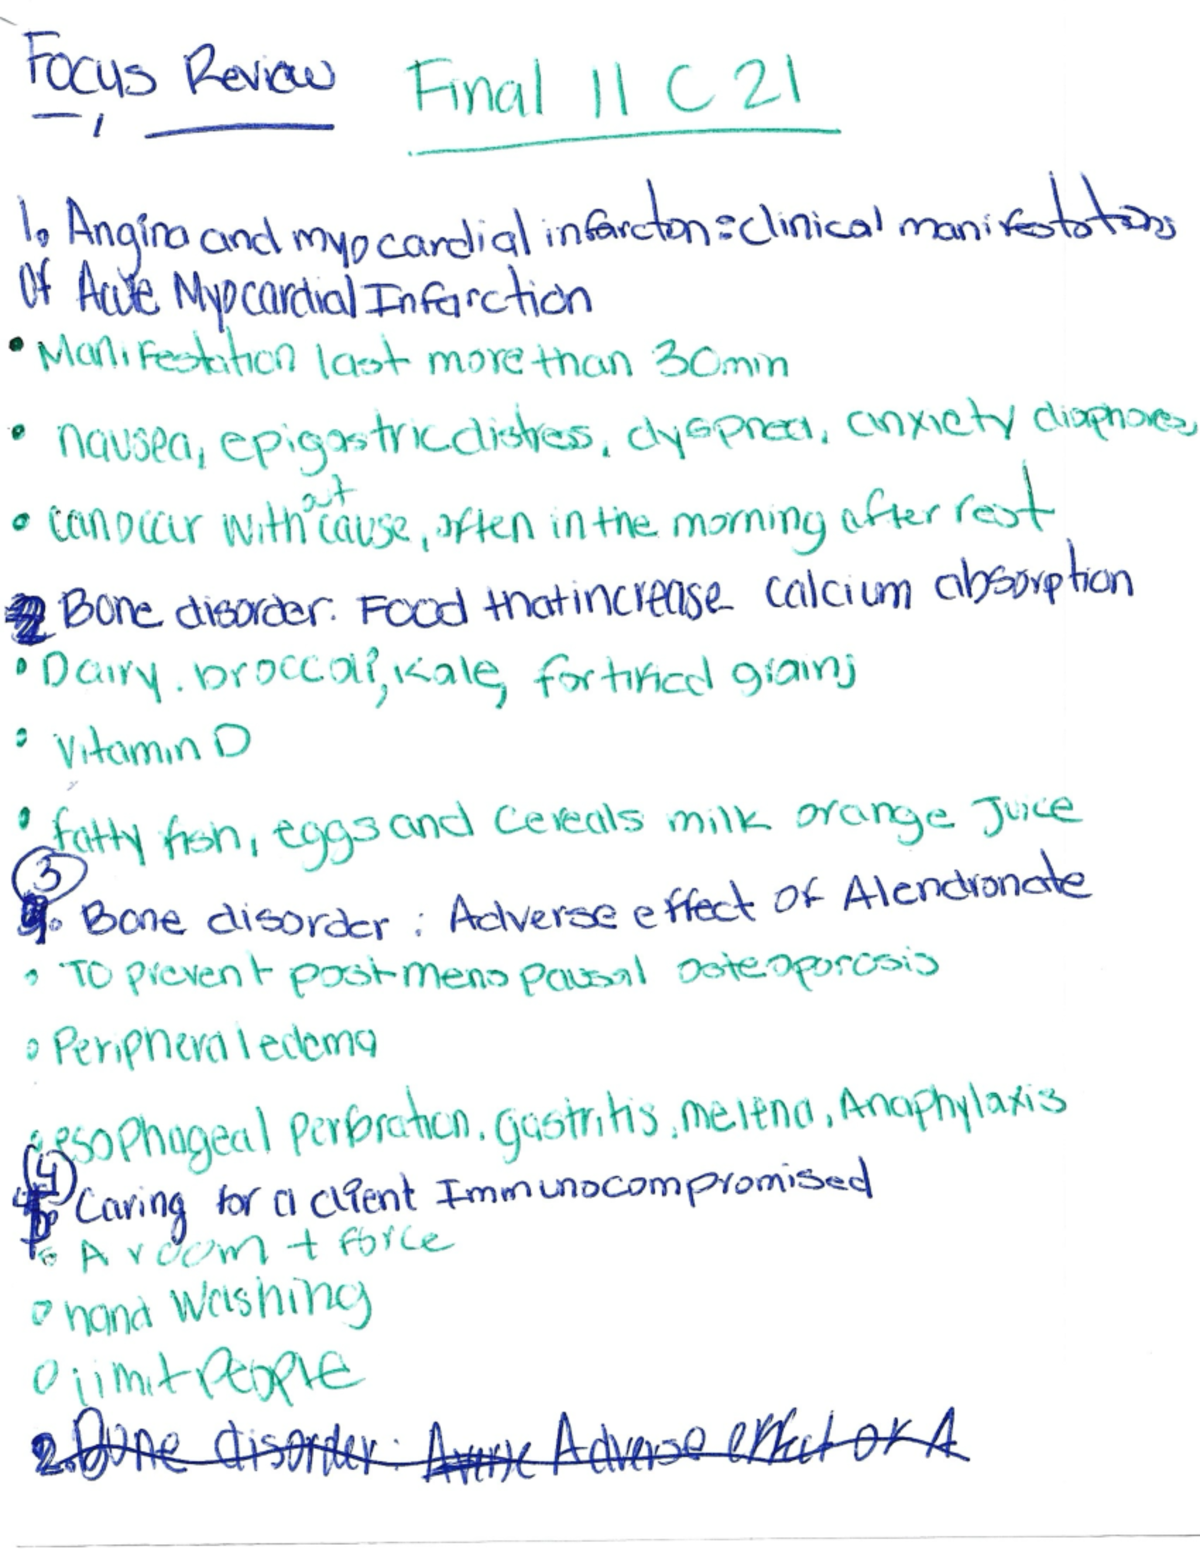 Focus Review Final 11 C 21
1. Angina and myocardial infarcton: clinical manifestations
Of Acute Myocardial Infarction
• Manifestation last more than 30min
• nausea, epigastric distress, dyspnea, anxiety diaphores
• can occur without cause, often in the morning after rest
2 Bone disorder: Food that increase calcium absorption
• Dairy. broccoli, Kale, fortified grains
• Vitamin D
• fatty fish, eggs and cereals milk orange Juice
3 Bone disorder: Adverse effect of Alendronate
• To prevent postmenopausal osteoporosis
• Peripheral edema
• esophageal perforation, gastritis, melena, Anaphylaxis
4 Caring for a client Immunocompromised
• A room + force
• hand washing
• limit People
2. Bone disorder: Adverse effect of A